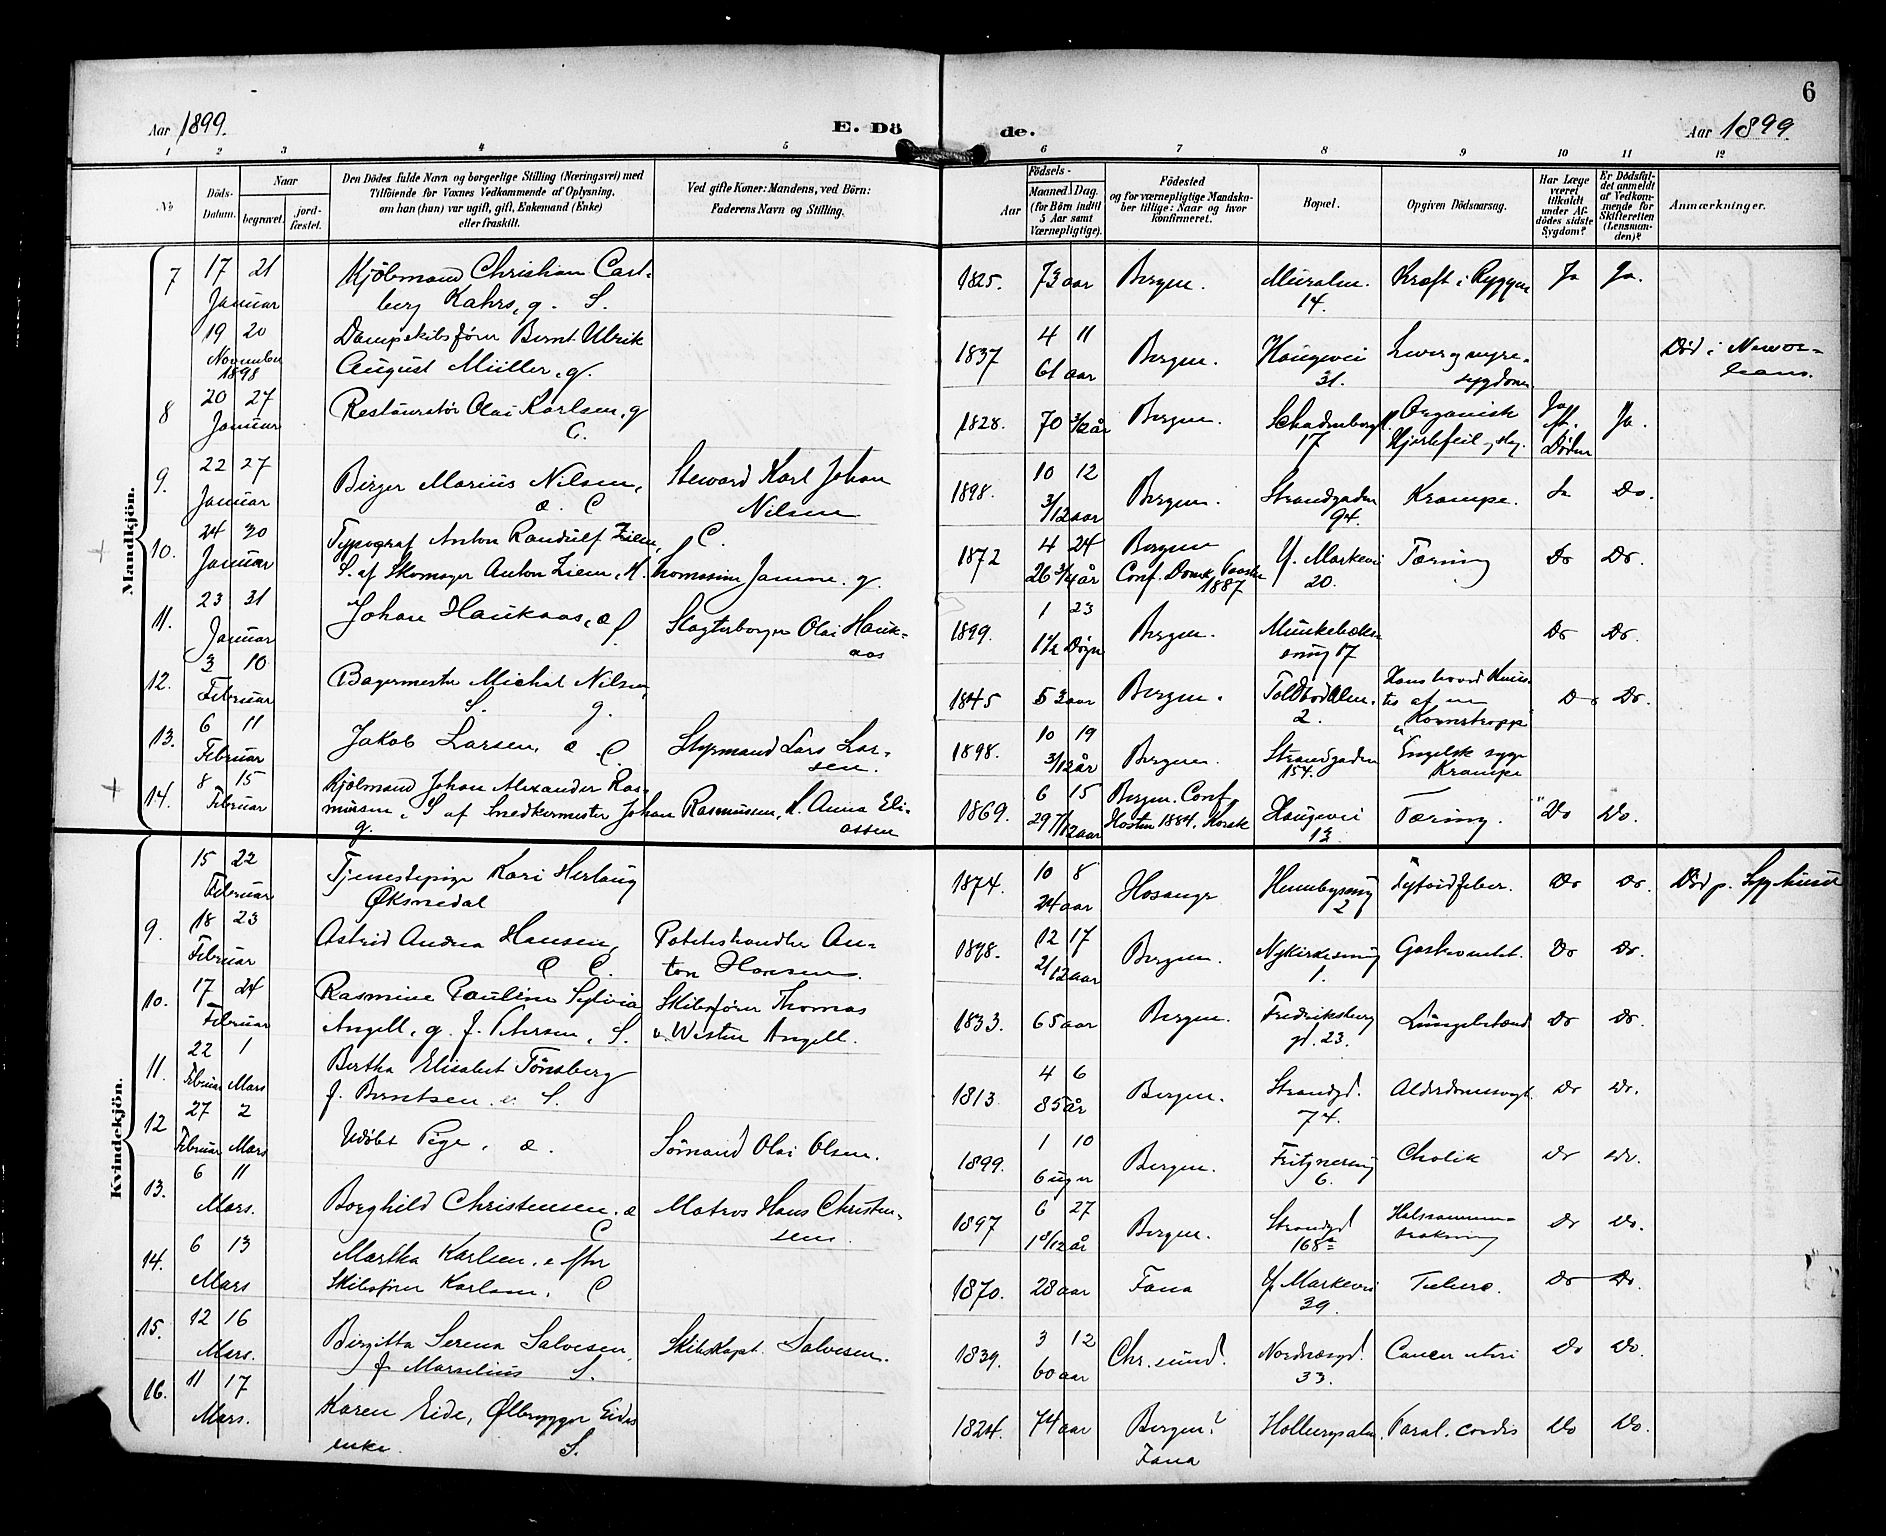 6
Aar 1899.
E. Dö
de.
Aar 1899
1 2 3 4 5 6 7 8 9 10 11 12
No
Döds-Datum.
Naar
begravet.
jord-fæstet.
Den Dödes fulde Navn og borgerlige Stilling (Næringsvei) med
Tilföiende for Voxnes Vedkommende af Oplysning,
om han (hun) var ugift, gift, Enkemand (Enke)
eller fraskilt.
Ved gifte Koner: Mandens, ved Börn:
Faderens Navn og Stilling.
Födsels-
Aar
Maaned. Dag.
(for Börn indtil
5 Aar samt
Værnepligtige).
Födested
og for værnepligtige Mandska-
ber tillige: Naar og hvor
konfirmeret.
Bopæl.
Opgiven Dödsaarsag.
Har Læge
været
tilkaldt
under Af-
dödes sidste
Sygdom?
Er Dödsfal-
det anmeldt
af Vedkom-
mende for
Skifteretten
(Lensman-
den)?
Anmærkninger.
Mandkjön.
7 17 21 Januar Kjöbmand Christian Carl-
berg Kahrs, g. S. 1825. 73 aar Bergen. Muralm. 14. Kræft i Ryggen Ja Ja.
19 20 November 1898 Dampskibsförer Bernt Ulrik
August Müller, g. 1837 4 11 61 aar Bergen. Haugevei 31. Død i Newor-
leans.
8 20 24 Januar Restauratör Olai Karlsen, g
C. 1828. 70 3/12 år Bergen. 17 Organisk
Hjertefeil Ja
eft.
Döden Ja.
9. 22 27 Januar Birger Marius Nilsen,
æ. C Steward Karl Johan
Nilsen 1898. 10 12 3/12 aar Bergen. Strandgaden
94. Krampe. Ja Do.
10. 24 30 Januar Typograf Anton Randulf Ziem, C.
S. af Skomager Anton Ziem, M. Thomasine Janne. g. 1872 4 24 26 3/4 år Bergen
Conf. Domk. Paaske
1887 Y. Markevei
20. Tæring Do Do.
11. 23 31 Januar Johan Haukaas, æ S. Slagterborger Olai Hauk-
aas 1899. 1 23 1 1/2 Døgn Bergen. 17 Do Do.
12. 3 10 Februar Bagermester Michal Nilsen,
S. g. 1845 53 aar Bergen. Toldbodalm.
2. Do Do.
13. 6 11 Februar Jakob Larsen, æ C. Styrmand Lars Lar-
sen. 1898. 10 19 3/12 år Bergen. Strandgaden
154. Engelsk syge
Krampe
14. 8 15 Februar Kjöbmand Johan Alexander Ras-
mussen, S af Snedkermester Johan Rasmussen, M. Anna Eli-
g. assen 1869. 6 15 29 7/12 aar Bergen. Conf.
Høsten 1884. Korsk Haugevei
13 Tæring. Do Do.
Kvindekjön.
15 22 Februar Tjenestepige Kari Herlaug
Øksnedal 1874. 10 8 24 aar Hosanger 2 Tyfoidfeber. Do Do. Död p. Sygehuset
9. 18 23 Februar Astrid Andrea Hansen,
æ C. Poteteshandler An-
ton Hansen. 1898. 12 17 2/12 aar Bergen. Nykirkesmug
1. Do Do.
10. 17 24 Februar Rasmine Pauline Sylvia
Angell, g. f. Petersen, S. Skibsförer Thomas
v. Westen Angell. 1833. 65 aar Bergen. Fredriksberg
gd. 23. Lungebetænd Do Do.
11. 22 1 Februar Mars Bertha Elisabet Tönsberg
f. Berntsen. e. S. 1813 4 6 85 år Bergen. Strandgd.
74. Alderdomssvagh. Do Do.
12 27 2 Februar Mars Udöbt Pige, æ. Sömand Olai Olsen. 1899. 1 10 6 uger Bergen. 6. Cholik Do Do.
13. 6 11 Mars. Borghild Christensen, æ
C Matros Hans Christen-
sen. 1897 6 27 1 8/12 år Bergen. Strandgd
168a Do Do.
14. 6 13 Mars Martha Karlsen, e efter
Skibsförer Karlsen, C 1870. 28 aar Fana Y. Markevei
39. Tuberc. Do Do.
15. 12 16 Mars. Birgitta Serena Salvesen,
f. Marselius S. Skibskapt. Salvesen. 1839. 3 12 60 aar Chr. sund. Nordnæsgd.
33. Cancer uteri Do Do.
16. 11 17 Mars. Karen Eide, Ølbrygger Eides
enke. S. 1824. 74 aar Bergen?
Fana Holbergsalm. Paral. cordis Do Do.